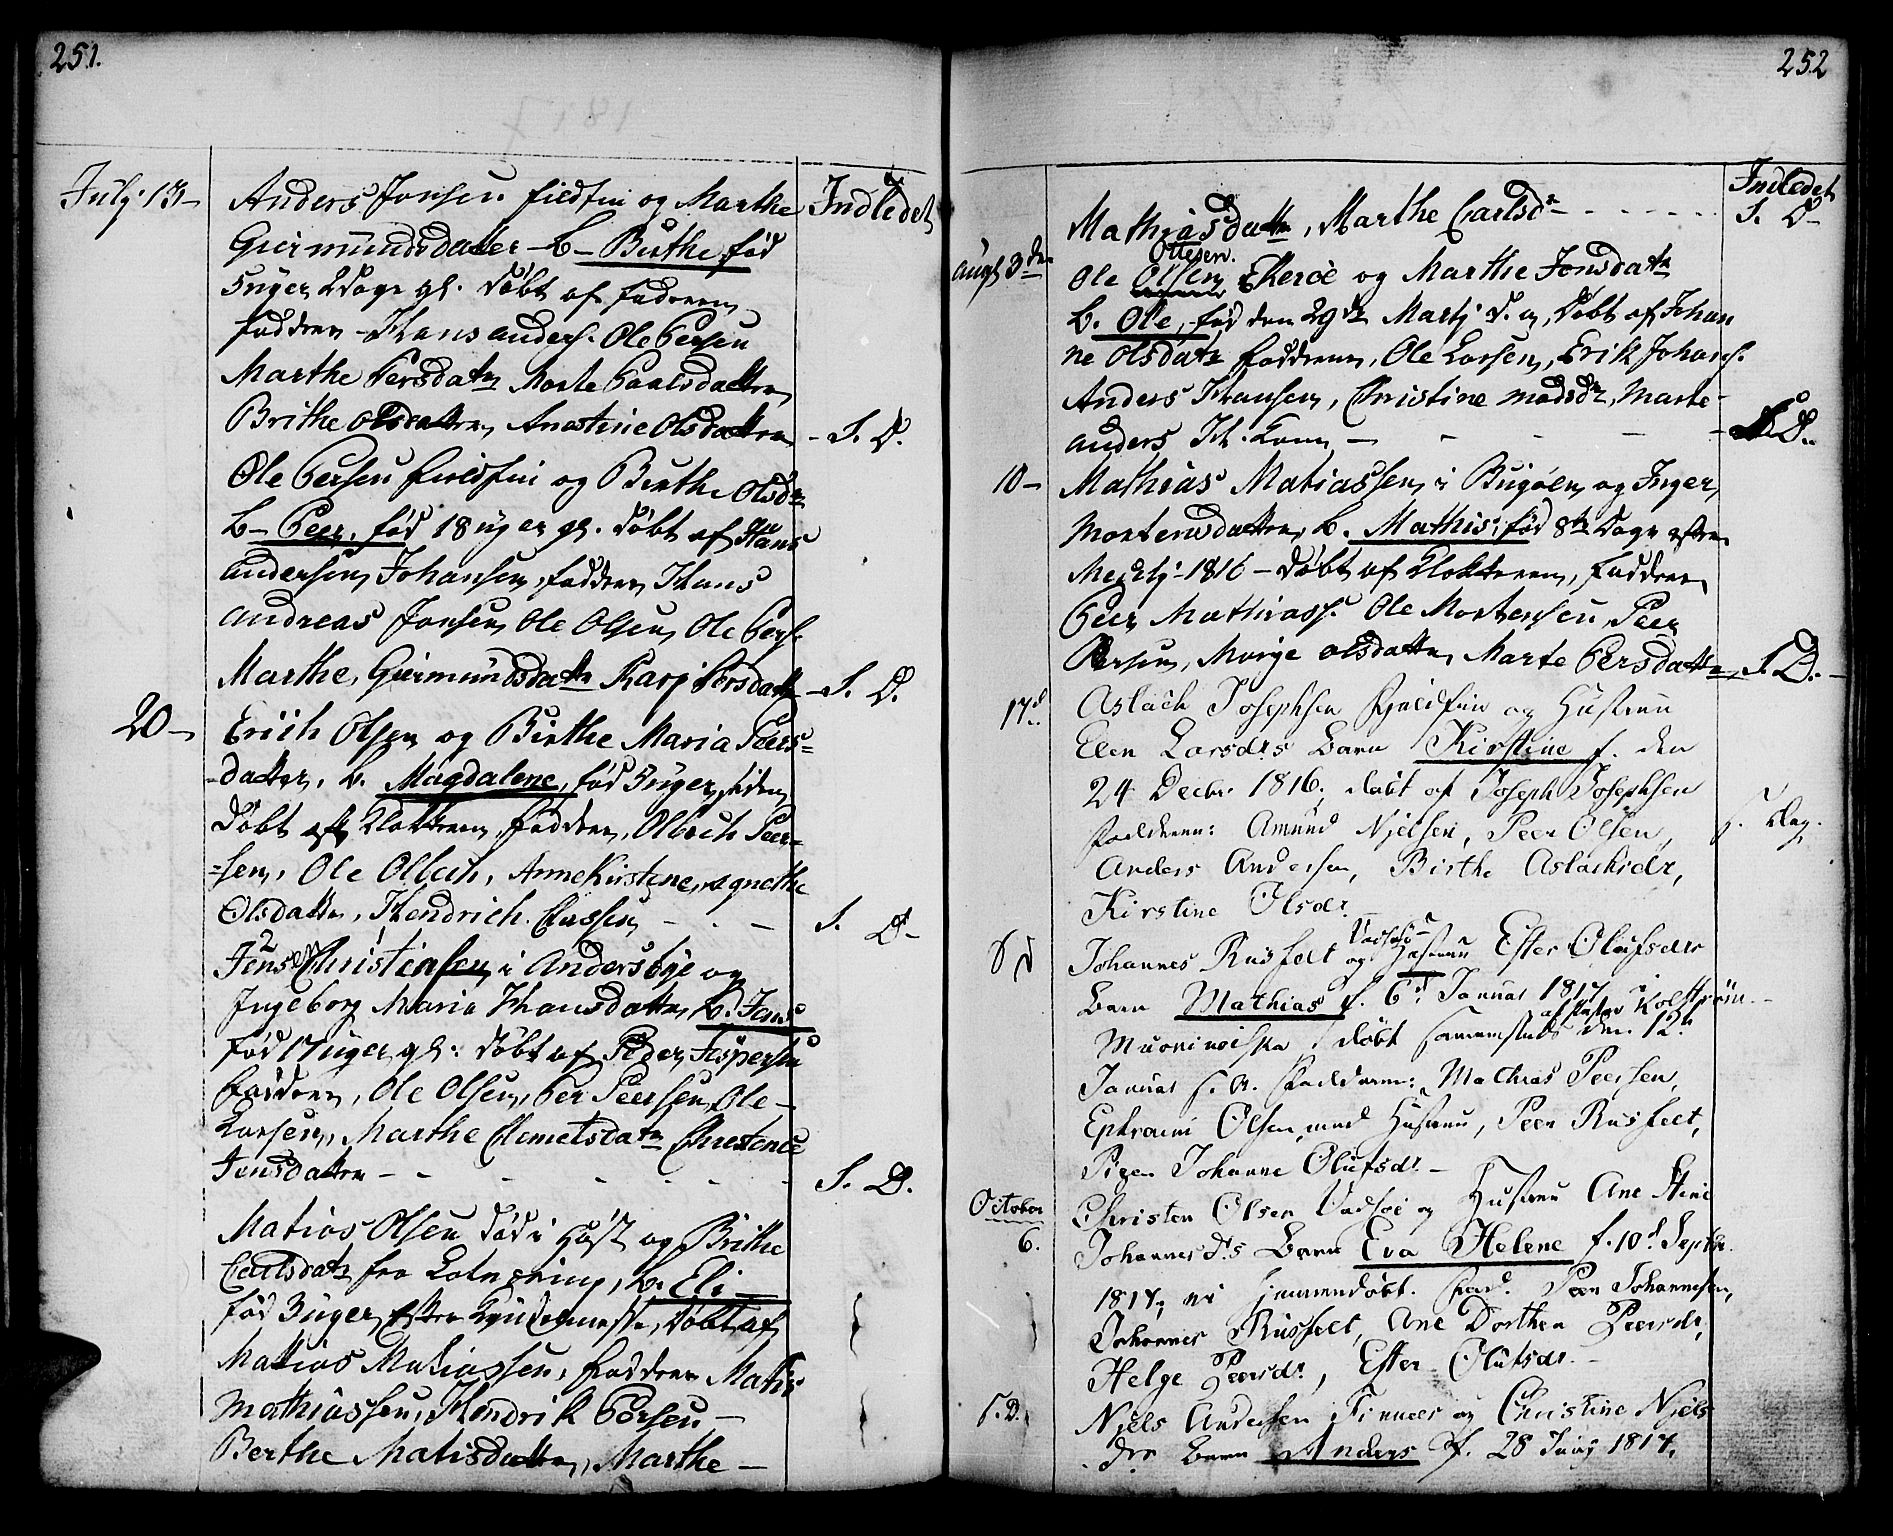 251.
July 13
Anders Jonsen fieldfin og Marthe
Indledet
Guirmundsdatter - b - Birthe, fød
3 uger 2 Dage gl. Døbt af faderen
faddren - Hans anders. Ole Persen
Marthe Persdatr Marte Paalsdatter
Brithe olsdatter, Anestine Olsdatter
S. D.
Ole Persen fieldfin og Birthe Olsdr
b - Peer, fød 18 uger gl. Døbt af Hans
andersen, Johansen, faddren Hans
andreas Jonsen, Ole Olsen, Ole Pers.
Marthe, Guirmundsdatr Karj Persdatter
S. D.
20
Erich Olsen og Birthe Maria Peers-
datter, b. Magdalene, fød 3 uger, siden
Døbt af Klokkeren, faddren, Olbich Peer-
sen, Ole Olbich, Anne Kirstene, agnethe
Olsdatter, Hendrich Clausen
S. D
Jens Christensen i Andersbye og
Ingeborg Maria Hansdatter, b. Jens
fød 17 uger gl: Døbt af Peder Jespersen
faddren, Ole Olsen, Per Peersen, Ole
Larsen, Marthe Clemetsdatr Christence
Jensdatter
S. D.
Matias Olsen Død i Høst og Brithe
Carlsdatr fra, b. Eli
fød 3 uger, efter Kyndelmesse, Døbt af
Matias Matiassen, faddren Matis
Mathiassen, Hendrik Persen
Berthe Matisdatter, Marthe
252
Indledet
Mathiasdatter, Marthe Carlsdr
S. D
augs 3de
Ottesen.
Ole Olsen Ekerøe og Marthe Jonsdatr
b. Ole, fød den 29de Martj d. a, Døbt af Johan
ne Olsdatr faddren, Ole Larsen, Erik Johans.
Anders Hansen, Christine madsdr, Marte
anders H. Kone
S. D.
10
Mathias Matiassen, i Bugøen, og Inger,
Mortensdatter, b. Mathis, fød 8te Dage efter
1816 - Døbt af Klokkeren, faddren
Peer Mathiass. Ole Mortensen, Peer
Persen, Marge olsdatter, Marte Persdatter
S. D.
17d
Aslach Josephsen Fjeldfin og Hustrue
Elen Larsdrs Barn Kirstine f. den
24 Decbr 1816, døbt af Joseph Josephsen
fadderne: Amund Njelsen, Peer Olsen,
S. Dag.
Anders Andersen, Birthe Aslachsdr,
Kirstine Olsdr.
S d
Vadsøe
Johannes Rusfelt og Hustrue Ester Olufsdr
Barn Mathias f. 6d Januar 1817 i
Muonioniska døbt sammesteds af Pastor Kolstrøm den 12
Januar s. A. Fadderne: Mathias Peersen,
Ephraim Olsen med Hustrue, Peer Rusfelt,
Pigen Johanne Olufsdr.
October
6.
Christen Olsen Vadsøe og Hustrue Ane Stine
Johannesdrs Barn Eva Helene f. 10d Septbr.
1817, er hiemmedøbt. Fad. Peer Johannesen,
Johannes Rusfelt, Ane Dorthea Peersdr,
Helge Peersdr, Ester Olufsdr.
S. D.
Njels Andersen Finnees og Christine Njels
dr Barn Anders f. 28 Juny 1817,